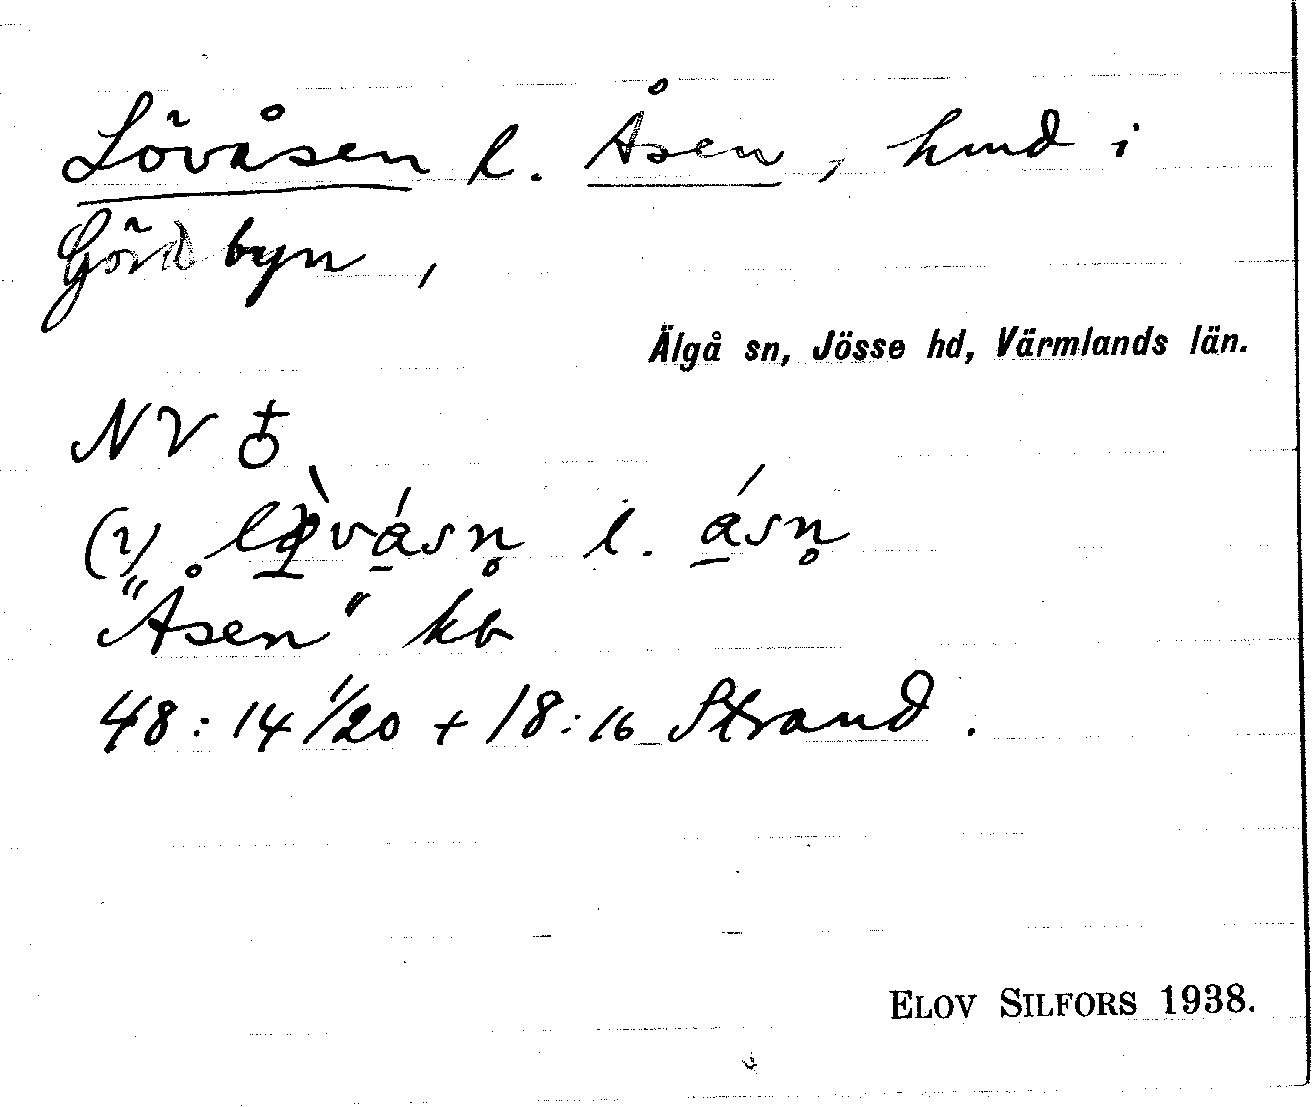 Lövåsen l. Åsen, hmd i
Gördbyn,
Älgå sn, Jösse hd, Värmlands län.
NV ♁
(2) lø̀vásn̥ l. ásn̥
"Åsen" kb
48:14 1/20 + 18:16 Strand.
ELOV SILFORS 1938.